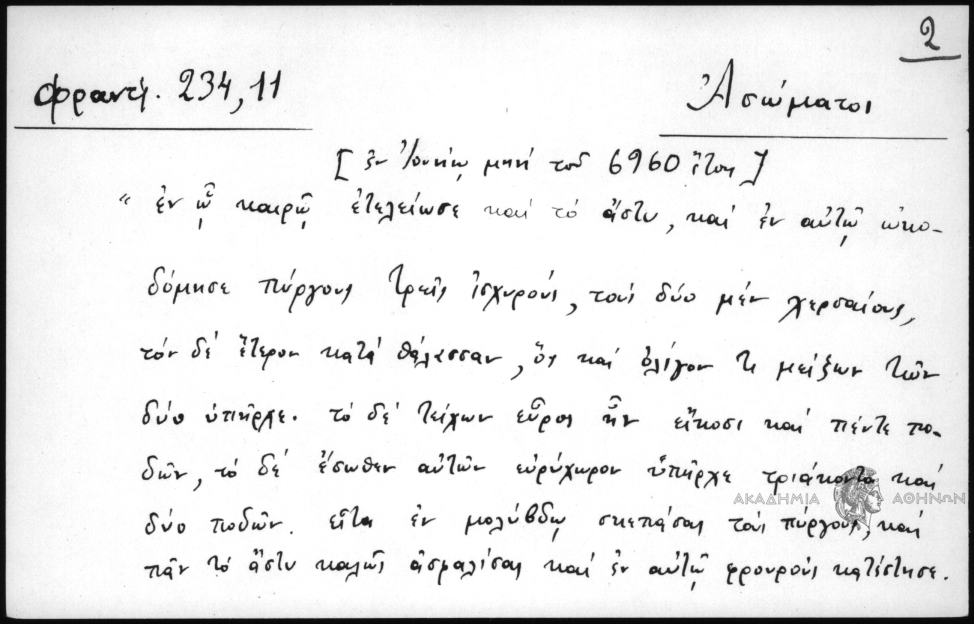 2
Φραντζ. 234,11
Ἀσώματοι
[ἐν Ἰουνίῳ μηνί τοῦ 6960 ἔτους]
"ἐν ᾧ καιρῷ ἐτελείωσε καί τό ἄστυ, καί ἐν αὐτῷ ὠκο-
δόμησε πύργους τρεῖς ἰσχυρούς, τούς δύο μέν χερσαίους,
τόν δέ ἕτερον κατά θάλασσαν, ὅς καί ὀλίγον τι μείζων τῶν
δύο ὑπῆρχε. τό δέ τείχων εὖρος ἦν εἴκοσι καί πέντε πο-
δῶν, τό δέ ἔσωθεν αὐτῶν εὐρύχωρον ὑπῆρχε τριάκοντα καί
δύο ποδῶν. εἶτα ἐν μολύβδῳ σκεπάσας τούς πύργους, καί
πᾶν τό ἄστυ καλῶς ἀσφαλίσας καί ἐν αὐτῷ φρουρούς κατέστησε.
ΑΚΑΔΗΜΙΑ ΑΘΗΝΩΝ